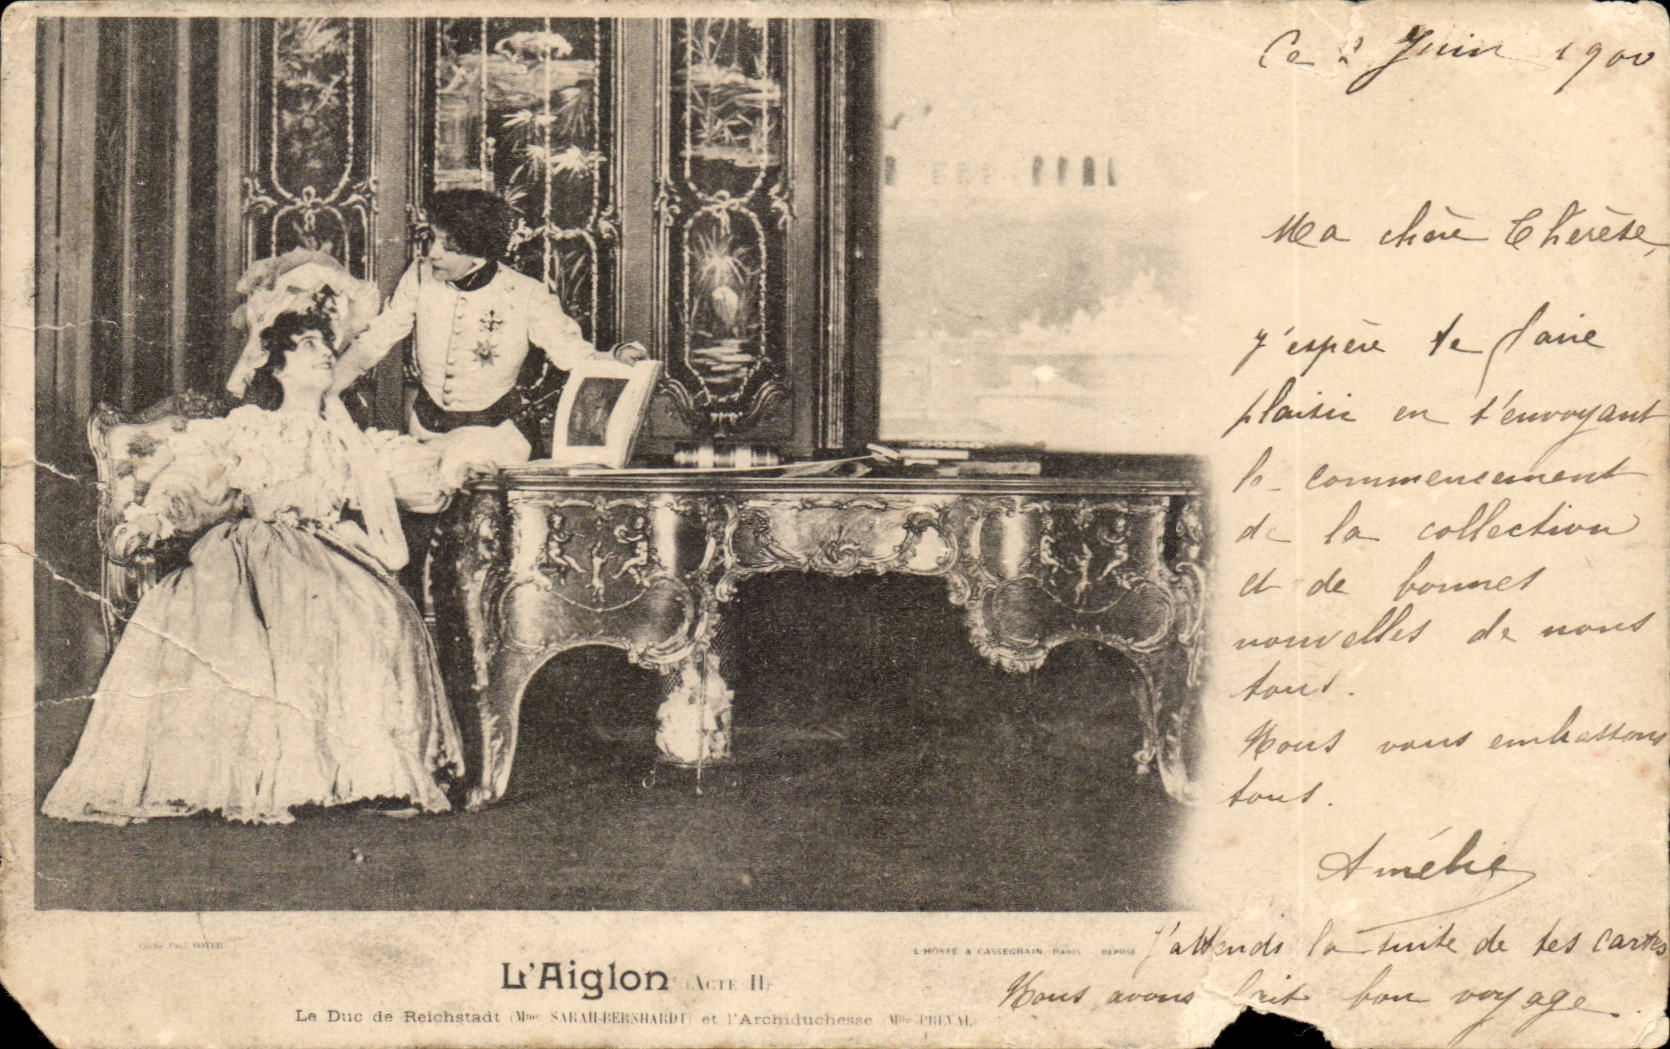 Ce Juin 1900
Ma chère Thérèse,
J'espère te faire
plaisir en t'envoyant
le commencement
de la collection
et de bonnes
nouvelles de nous
tous.
Nous vous embrassons
tous.
Amélie
J'attends la suite de tes cartes
Nous avons fait bon voyage.
Cliché Paul BOYER
L'HOSTE & CASSEGRAIN, PARIS - DÉPOSÉ
L'Aiglon (Acte II)
Le Duc de Reichstadt (Mme SARAH-BERNHARDT) et l'Archiduchesse (Mlle PREVAL)